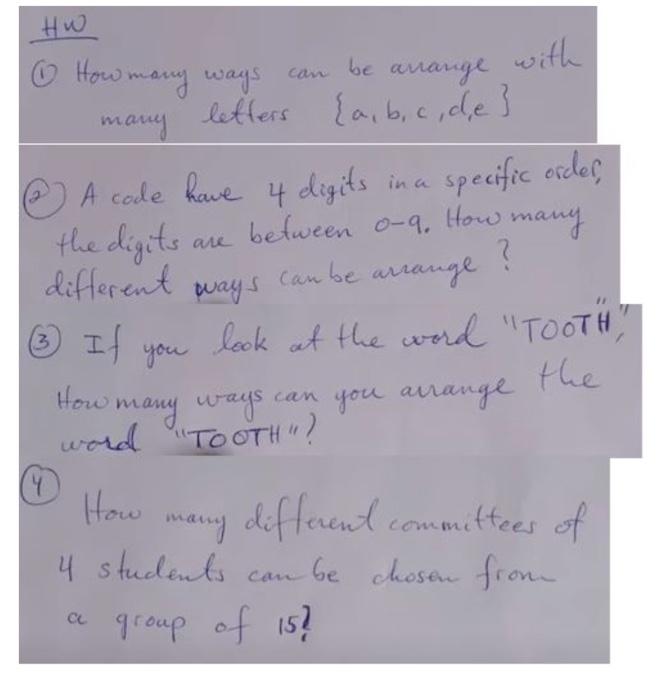 HW
① How many ways can be arrange with
many letters {a,b,c,d,e}
② A code have 4 digits in a specific order,
the digits are between 0-9. How many
different ways can be arrange?
③ If you look at the word "TOOTH",
How many ways can you arrange the
word "TOOTH"?
④
How many different committees of
4 students can be chosen from
a group of 15?